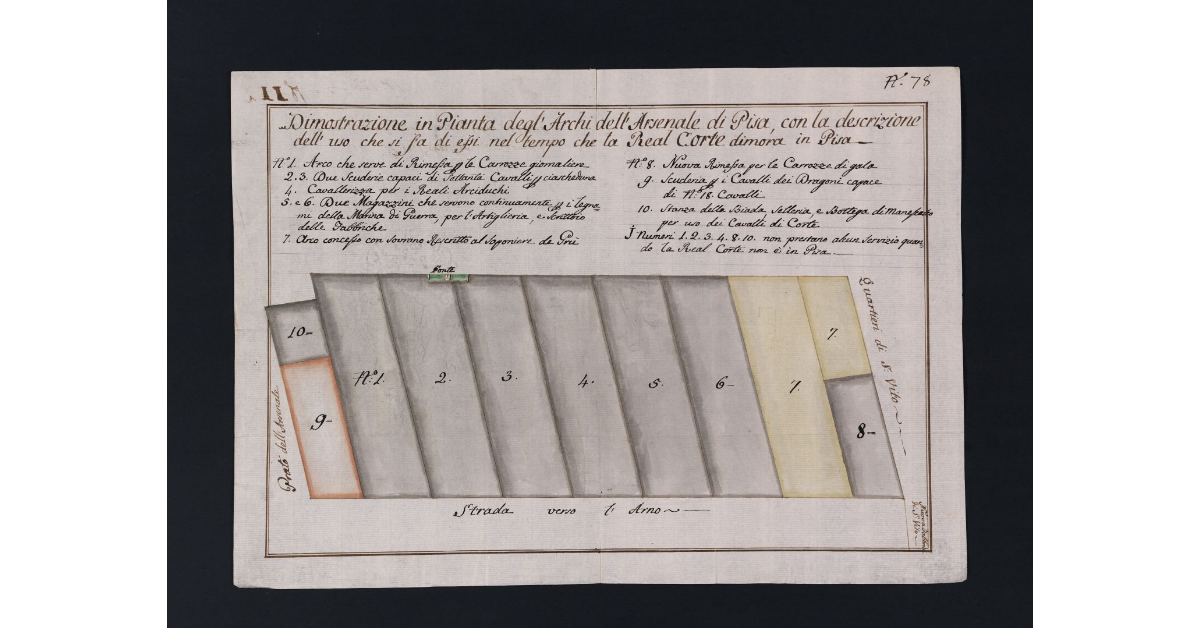 11
N.º 78
Dimostrazione in Pianta degl'Archi dell'Arsenale di Pisa, con la descrizione
dell'uso che si fa di essi nel tempo che la Real Corte dimora in Pisa
N.º 1. Arco che serve di Rimessa p le Carrozze giornaliere
2. 3. Due Scuderie capaci di Settanta Cavalli p ciascheduna
4. Cavallerizza per i Reali Arciduchi
5. e 6. Due Magazzini che servono continuamente p i legna-
mi della Marina di Guerra per l'Artiglieria, e Scrittoio
delle Fabbriche
7. Arco concesso con sovrano Rescritto al Saponiere de
N.º 8. Nuova Rimessa per le Carrozze di gala
9. Scuderia p i Cavalli dei Dragoni capace
di N.º 18. Cavalli
10. Stanza della Biada, Selleria, e Bottega di Manescalco
per uso dei Cavalli di Corte
I Numeri 1. 2. 3. 4. 8. 10. non prestano alcun servizio quan-
do la Real Corte non è in Pisa
Fonte
10
N.º 1.
2.
3.
4.
5.
6
7.
7.
8
9
Prato dell'Arsenale
Quartieri di S. Vito
Strada verso l'Arno